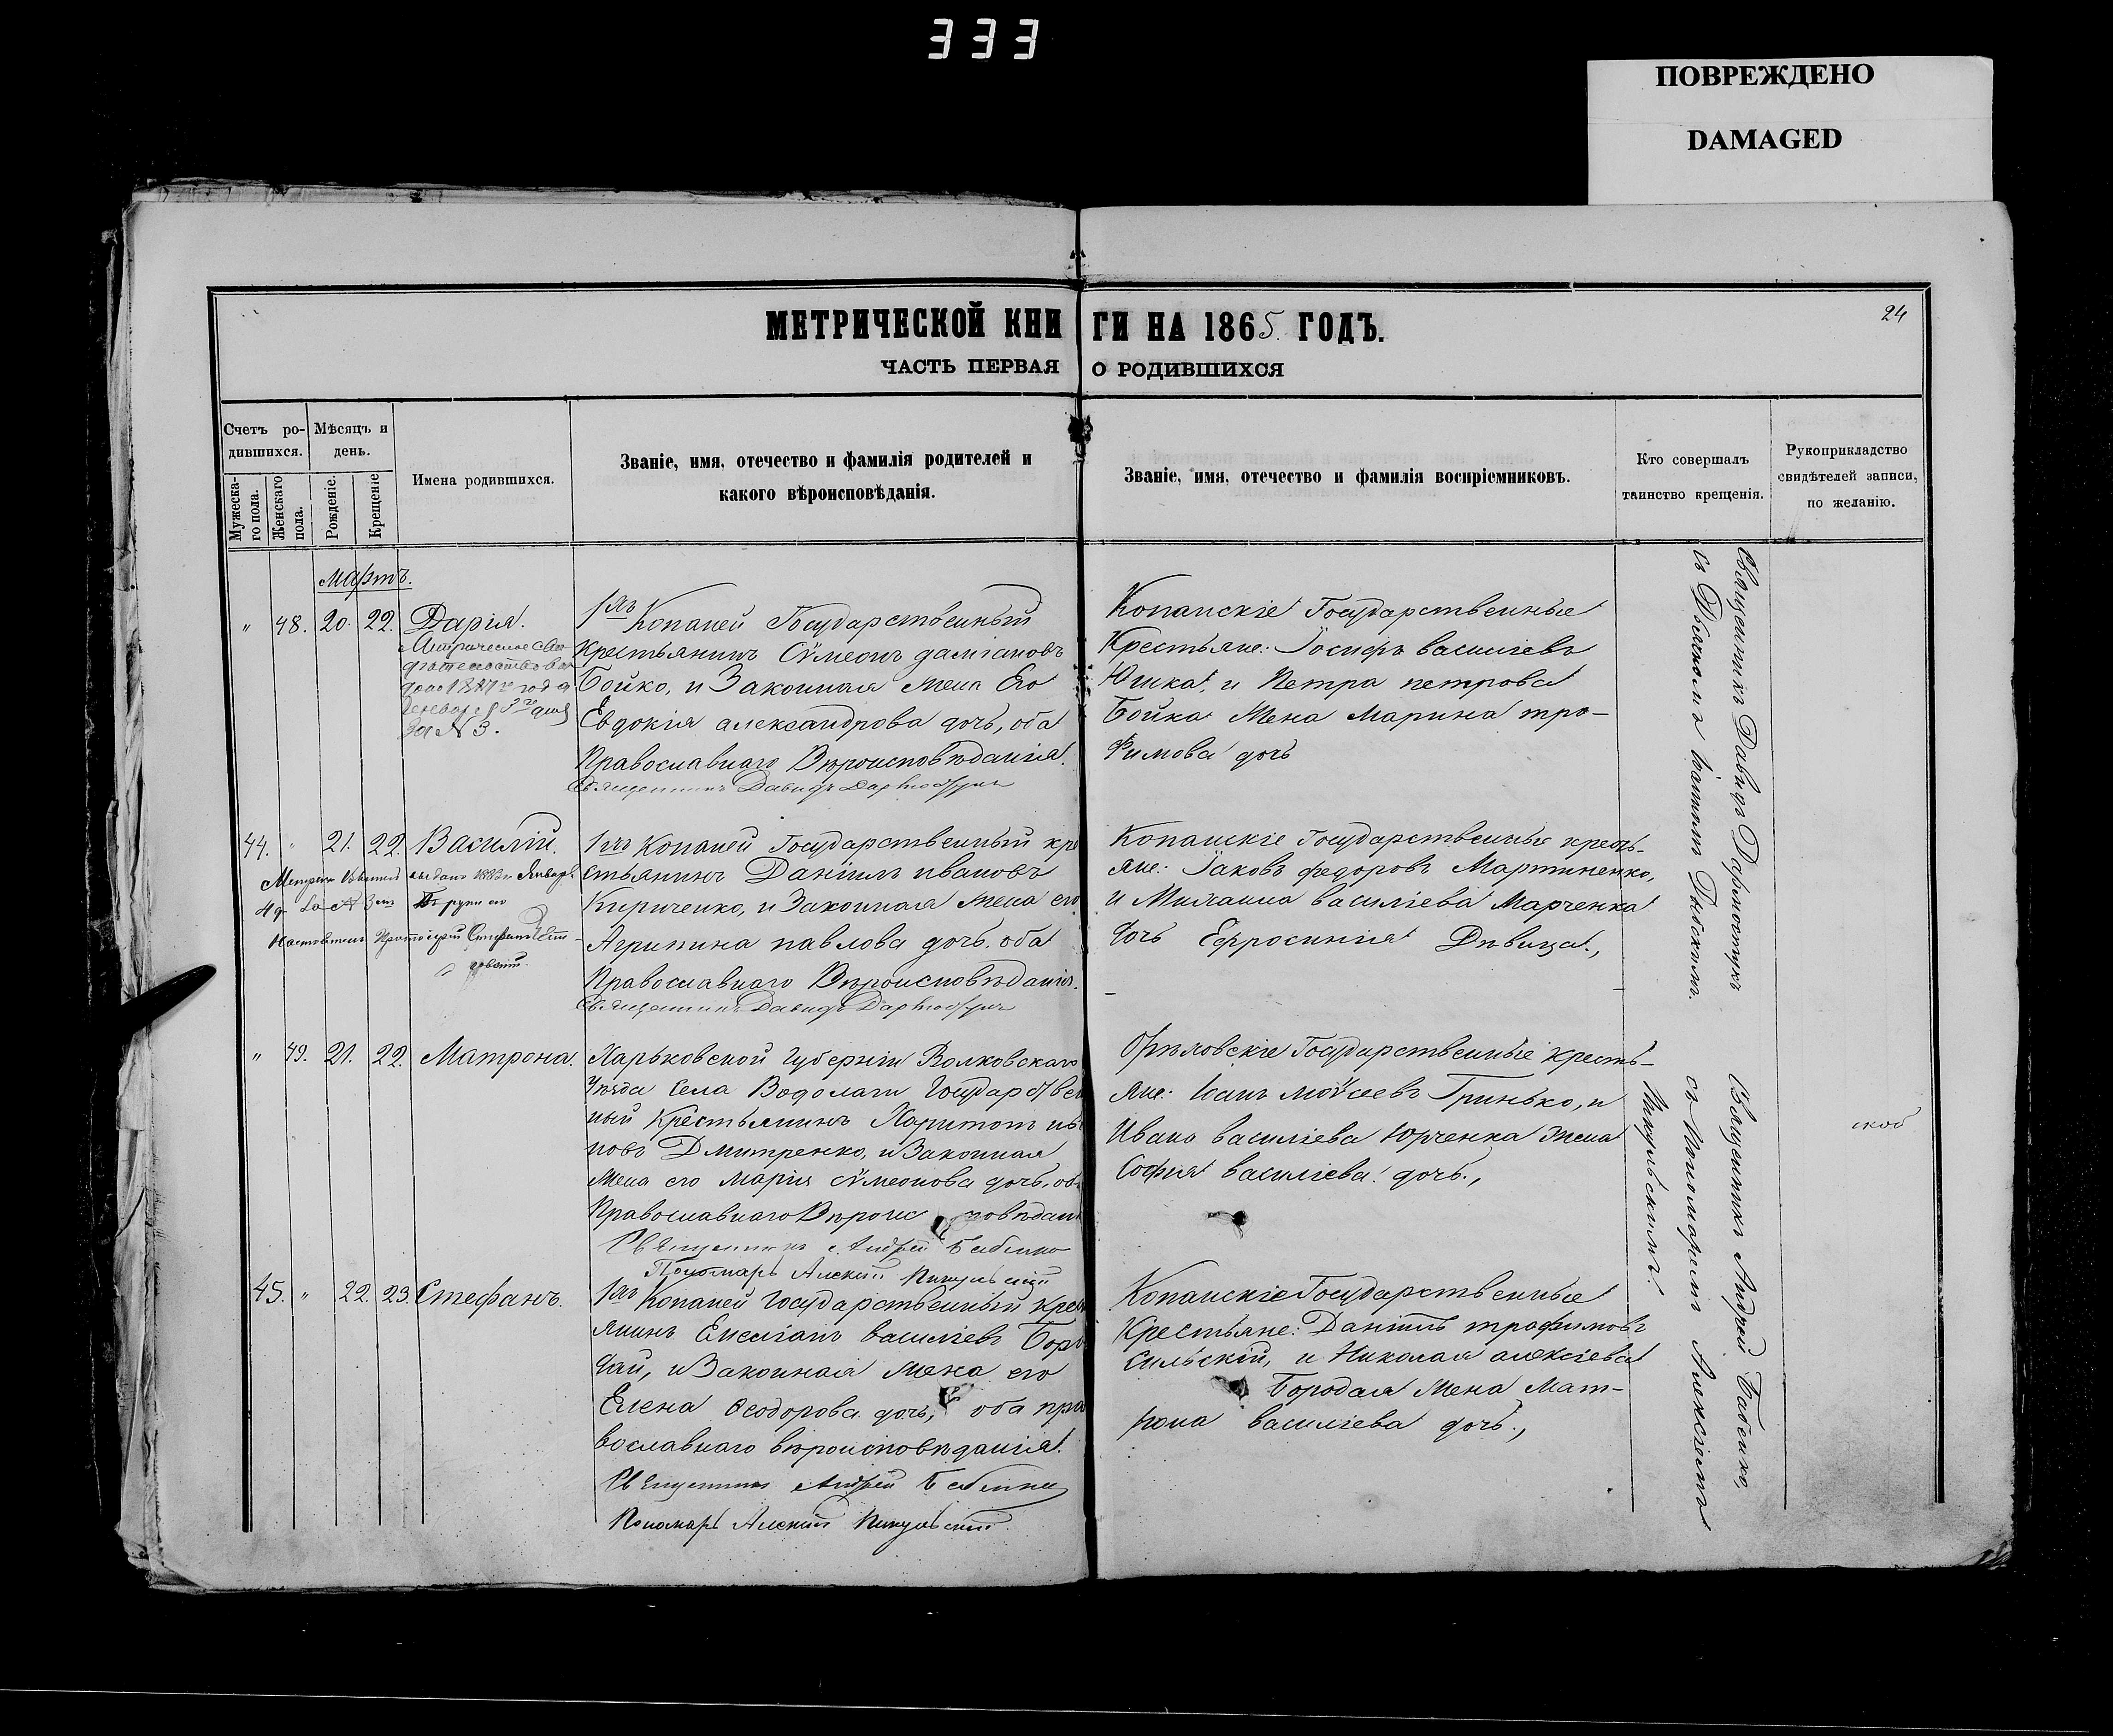 333
ПОВРЕЖДЕНО
DAMAGED
24
МЕТРИЧЕСКОЙ КНИГИ НА 1865 ГОДЪ.
ЧАСТЬ ПЕРВАЯ О РОДИВШИХСЯ
Счетъ ро-
дившихся.
Мужеска-
го пола.
Женскаго
пола.
Мѣсяцъ и
день.
Рожденіе.
Крещеніе
Имена родившихся.
Званіе, имя, отечество и фамилія родителей и
какого вѣроисповѣданія.
Званіе, имя, отечество и фамилія воспріемниковъ.
Кто совершалъ
таинство крещенія.
Рукоприкладство
свидѣтелей записи,
по желанію.
Мартъ.
" 48. 20. 22. Дарія.
За № 3.
Копаней Государственный
Крестьянинъ Сѵмеонъ
Бойко, и Законная Жена Его
Евдокія александрова дочь, оба
Православнаго Вѣроисповѣданія.
Священникъ Давидъ
Копанскіе Государственные
Крестьяне: Іосифъ василіевъ
Юшка, и Петра петрова
Бойка Жена Марина тро-
фимова дочь
Священникъ Давидъ
съ Дьякономъ
44. " 21. 22. Василій.
Копаней Государственный кре
стьянинъ Даніилъ ивановъ
Кириченко, и Законная Жена его
Агрипина павлова дочь. оба
Православнаго Вѣроисповѣданія.
Священникъ Давидъ
Копанскіе Государственные кресть-
яне: Іаковъ федоровъ Мартиненко,
и василіева Марченка
дочь Ефросинія Дѣвица.,
" 49. 21. 22. Матрона.
Харьковской Губерніи Волковскаго
Уѣзда Села Водолаги Государствен
ный Крестьянинъ Харитонъ ива
новъ Дмитренко, и Законная
Жена его Марія Сѵмеонова дочь, оба
Православнаго Вѣроис повѣдан
Священникъ Андрей Бабенко
Пономарь Алексій Пикульскій
Орѣловскіе Государственные кресть-
яне: Іоанъ Гринько, и
Ивана василіева Юрченка жена
Софія василіева дочь.,
скоб
Священникъ Андрей Бабенко,
съ Пономаремъ Алексіемъ
Пикульскимъ.
45. " 22. 23. Стефанъ.
Копаней Государственный Крест
янинъ василіевъ Боро
дай, и Законная Жена его
Елена Ѳеодорова дочь, оба пра
вославнаго вѣроисповѣданія.
Священникъ Андрей Бабенко
Пономарь Алексій Пикульскій.
Копанскіе Государственные
Крестьяне: Даніилъ трофимовъ
Сильскій, и Николая алексіева
Бородая Жена Мат-
рона василіева дочь.,